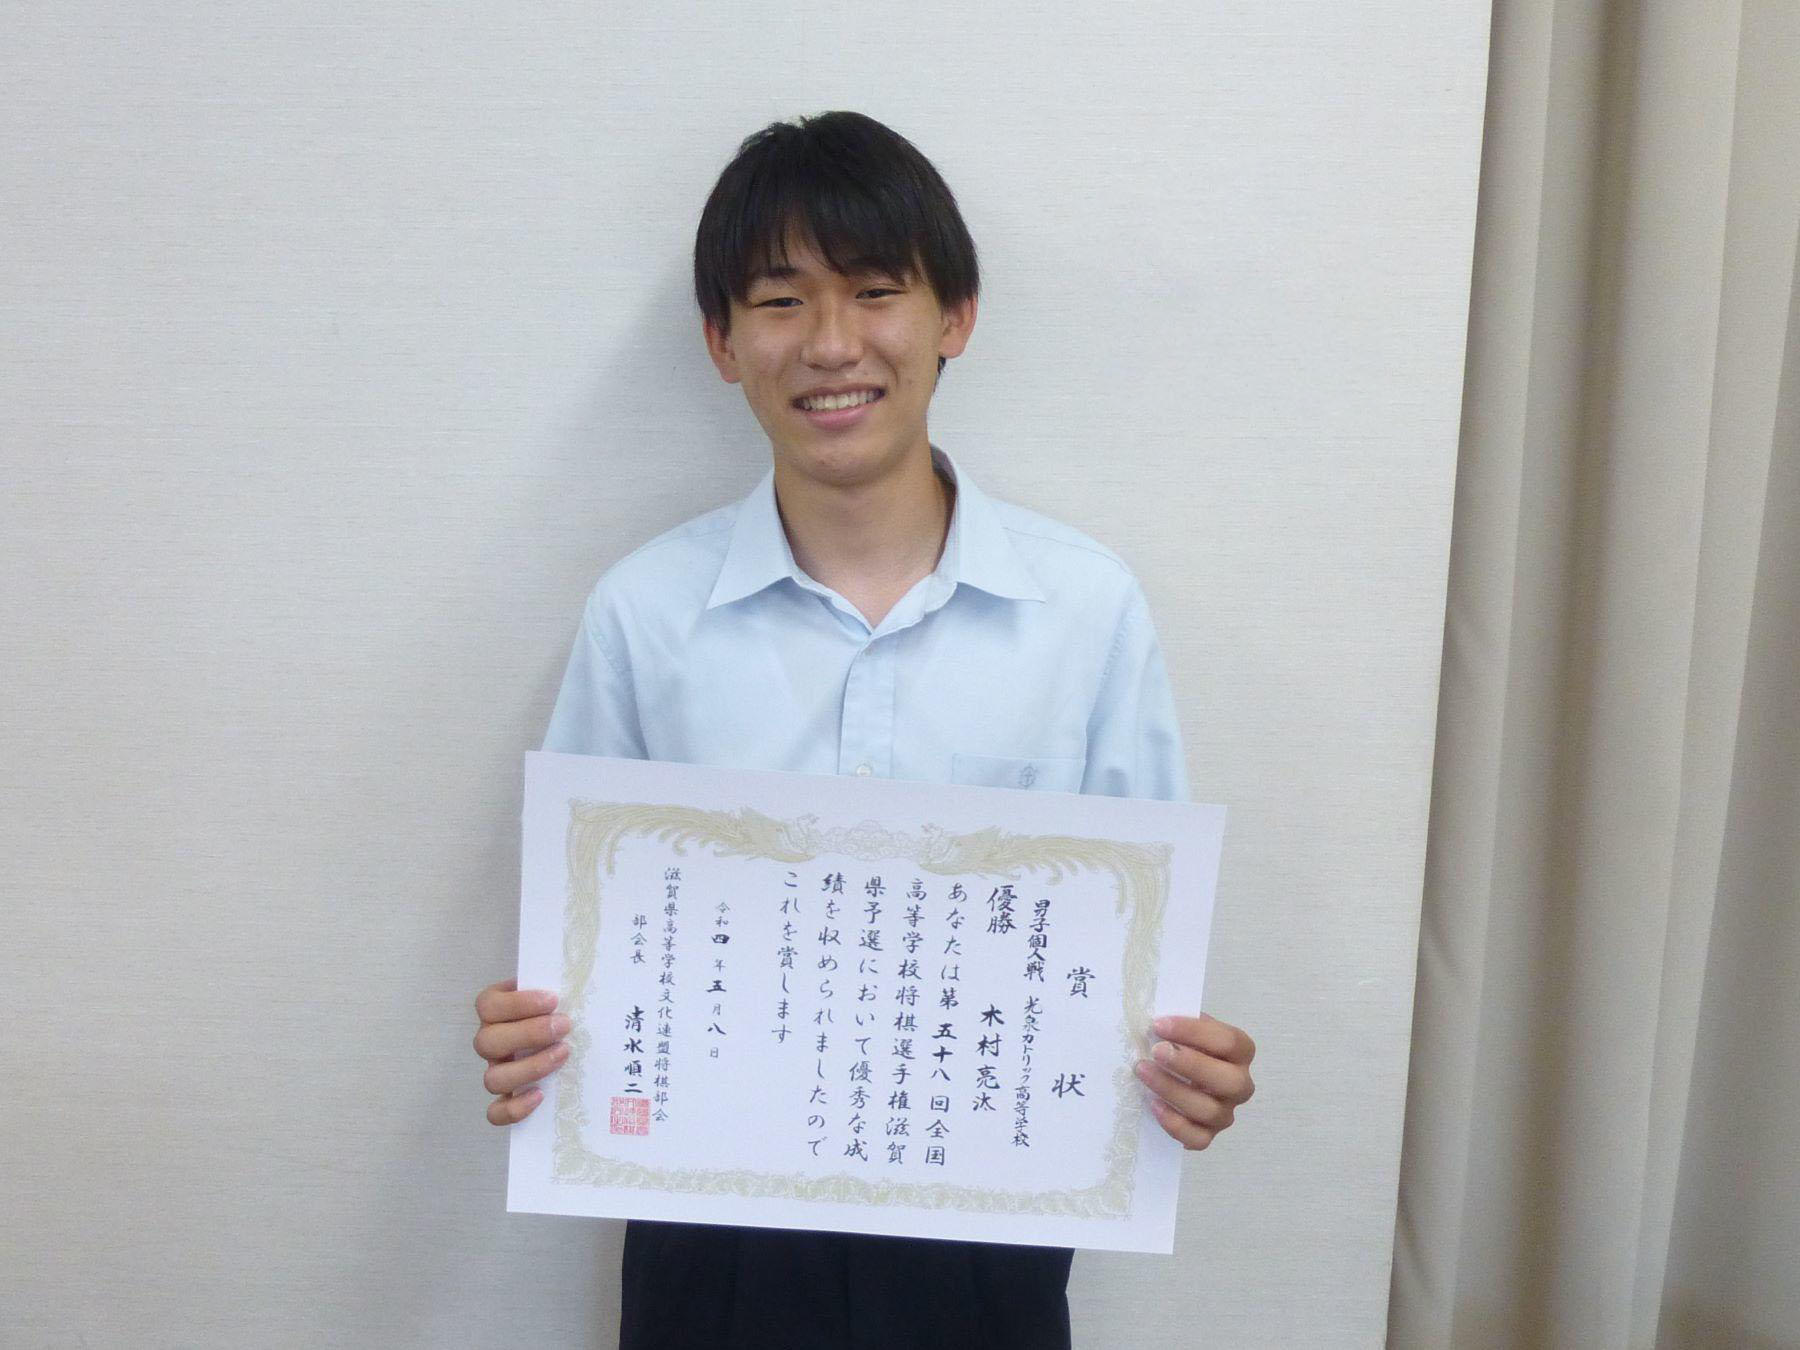 賞状
男子個人戦 光泉カトリック高等学校
優勝 木村亮汰
あなたは第五十八回全国
高等学校将棋選手権滋賀
県予選において優秀な成
績を収められましたので
これを賞します
令和四年五月八日
滋賀県高等学校文化連盟将棋部会
部会長 清水順二